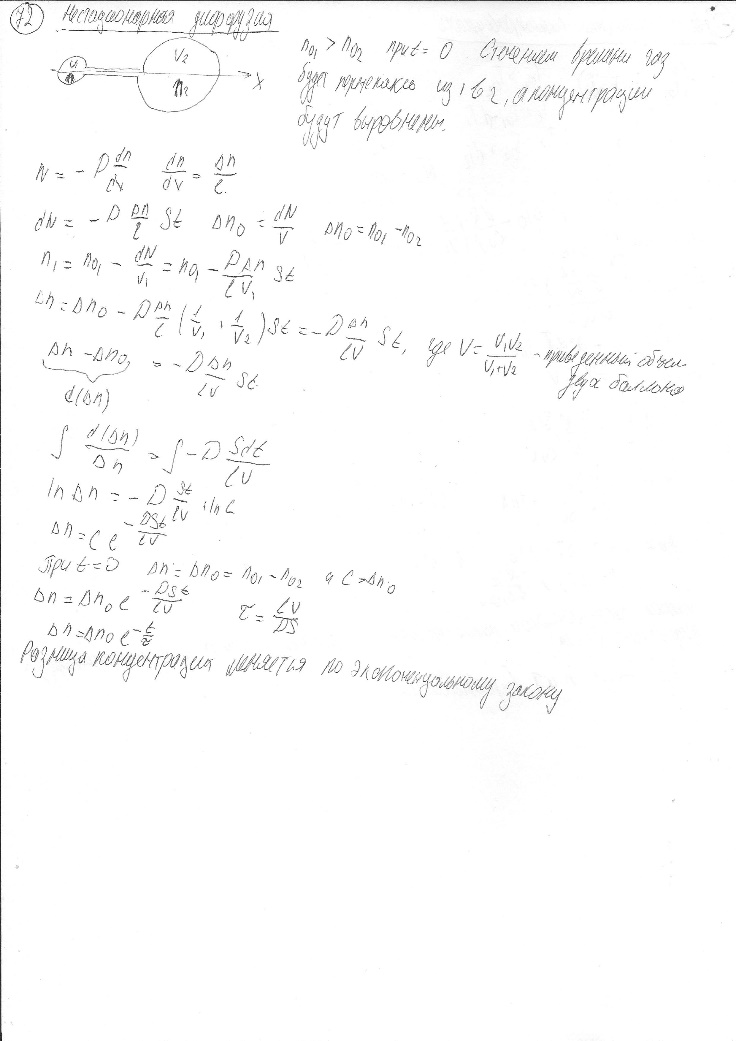 72 Нестационарная диффузия
V₁ V₂ n₂ x
n₀₁ > n₀₂ при t = 0 С течением времени газ
будет перетекать из 1 в 2, а концентрации
будут выровнены.
N = - D dn/dv   dn/dv = Δn/l
dN = - D Δn/l St   Δn₀ = dN/V   Δn₀ = n₀₁ - n₀₂
n₁ = n₀₁ - dN/V₁ = n₀₁ - DΔn/lV₁ St
Δn = Δn₀ - D Δn/l (1/V₁ + 1/V₂) St = - D Δn/lV St, где V = V₁V₂/V₁+V₂ - приведенный объем
двух баллонов
Δn - Δn₀ = - D Δn/lV St
d(Δn)
∫ d(Δn)/Δn = ∫ - D Sdt/lV
ln Δn = - D St/lV + ln C
Δn = C e^(-DSt/lV)
При t = 0   Δn = Δn₀ = n₀₁ - n₀₂ и C = Δn₀
Δn = Δn₀ e^(-DSt/lV)   τ = lV/DS
Δn = Δn₀ e^(-t/τ)
Разница концентраций меняеться по экспоненциальному закону